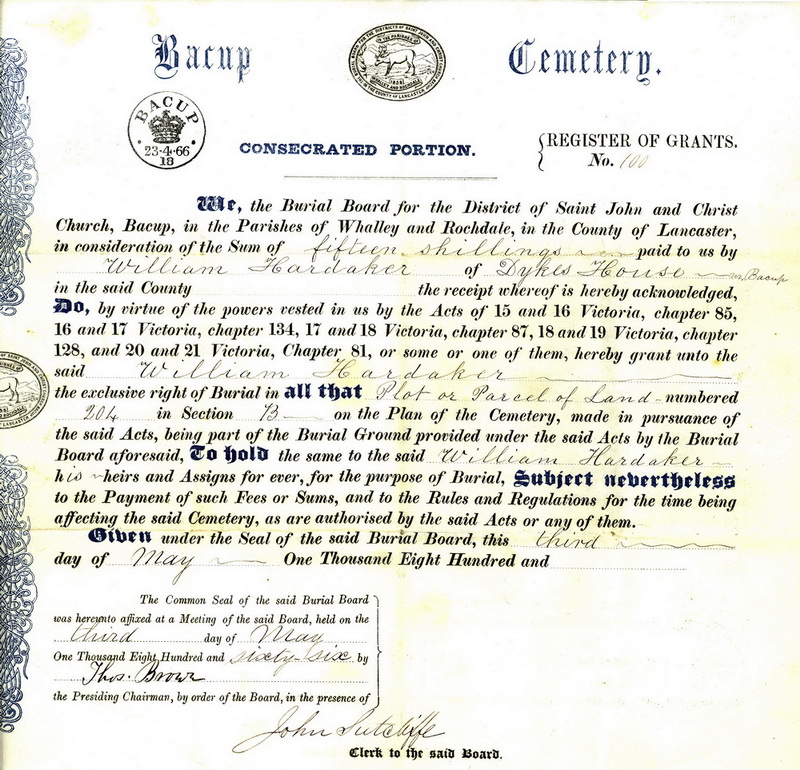 Bacup Cemetery.
BACUP
23·4·66
18
CONSECRATED PORTION.
REGISTER OF GRANTS.
No. 100
We, the Burial Board for the District of Saint John and Christ
Church, Bacup, in the Parishes of Whalley and Rochdale, in the County of Lancaster,
in consideration of the Sum of fifteen shillings paid to us by
William Hardaker of Dykes House nr Bacup
in the said County the receipt whereof is hereby acknowledged,
Do, by virtue of the powers vested in us by the Acts of 15 and 16 Victoria, chapter 85,
16 and 17 Victoria, chapter 134, 17 and 18 Victoria, chapter 87, 18 and 19 Victoria, chapter
128, and 20 and 21 Victoria, Chapter 81, or some or one of them, hereby grant unto the
said William Hardaker
the exclusive right of Burial in all that Plot or Parcel of Land numbered
204 in Section B on the Plan of the Cemetery, made in pursuance of
the said Acts, being part of the Burial Ground provided under the said Acts by the Burial
Board aforesaid, To hold the same to the said William Hardaker
his heirs and Assigns for ever, for the purpose of Burial, Subject nevertheless
to the Payment of such Fees or Sums, and to the Rules and Regulations for the time being
affecting the said Cemetery, as are authorised by the said Acts or any of them.
Given under the Seal of the said Burial Board, this third
day of May One Thousand Eight Hundred and
The Common Seal of the said Burial Board
was hereunto affixed at a Meeting of the said Board, held on the
third day of May
One Thousand Eight Hundred and sixty-six by
Thos. Brown
the Presiding Chairman, by order of the Board, in the presence of
John Sutcliffe
Clerk to the said Board.